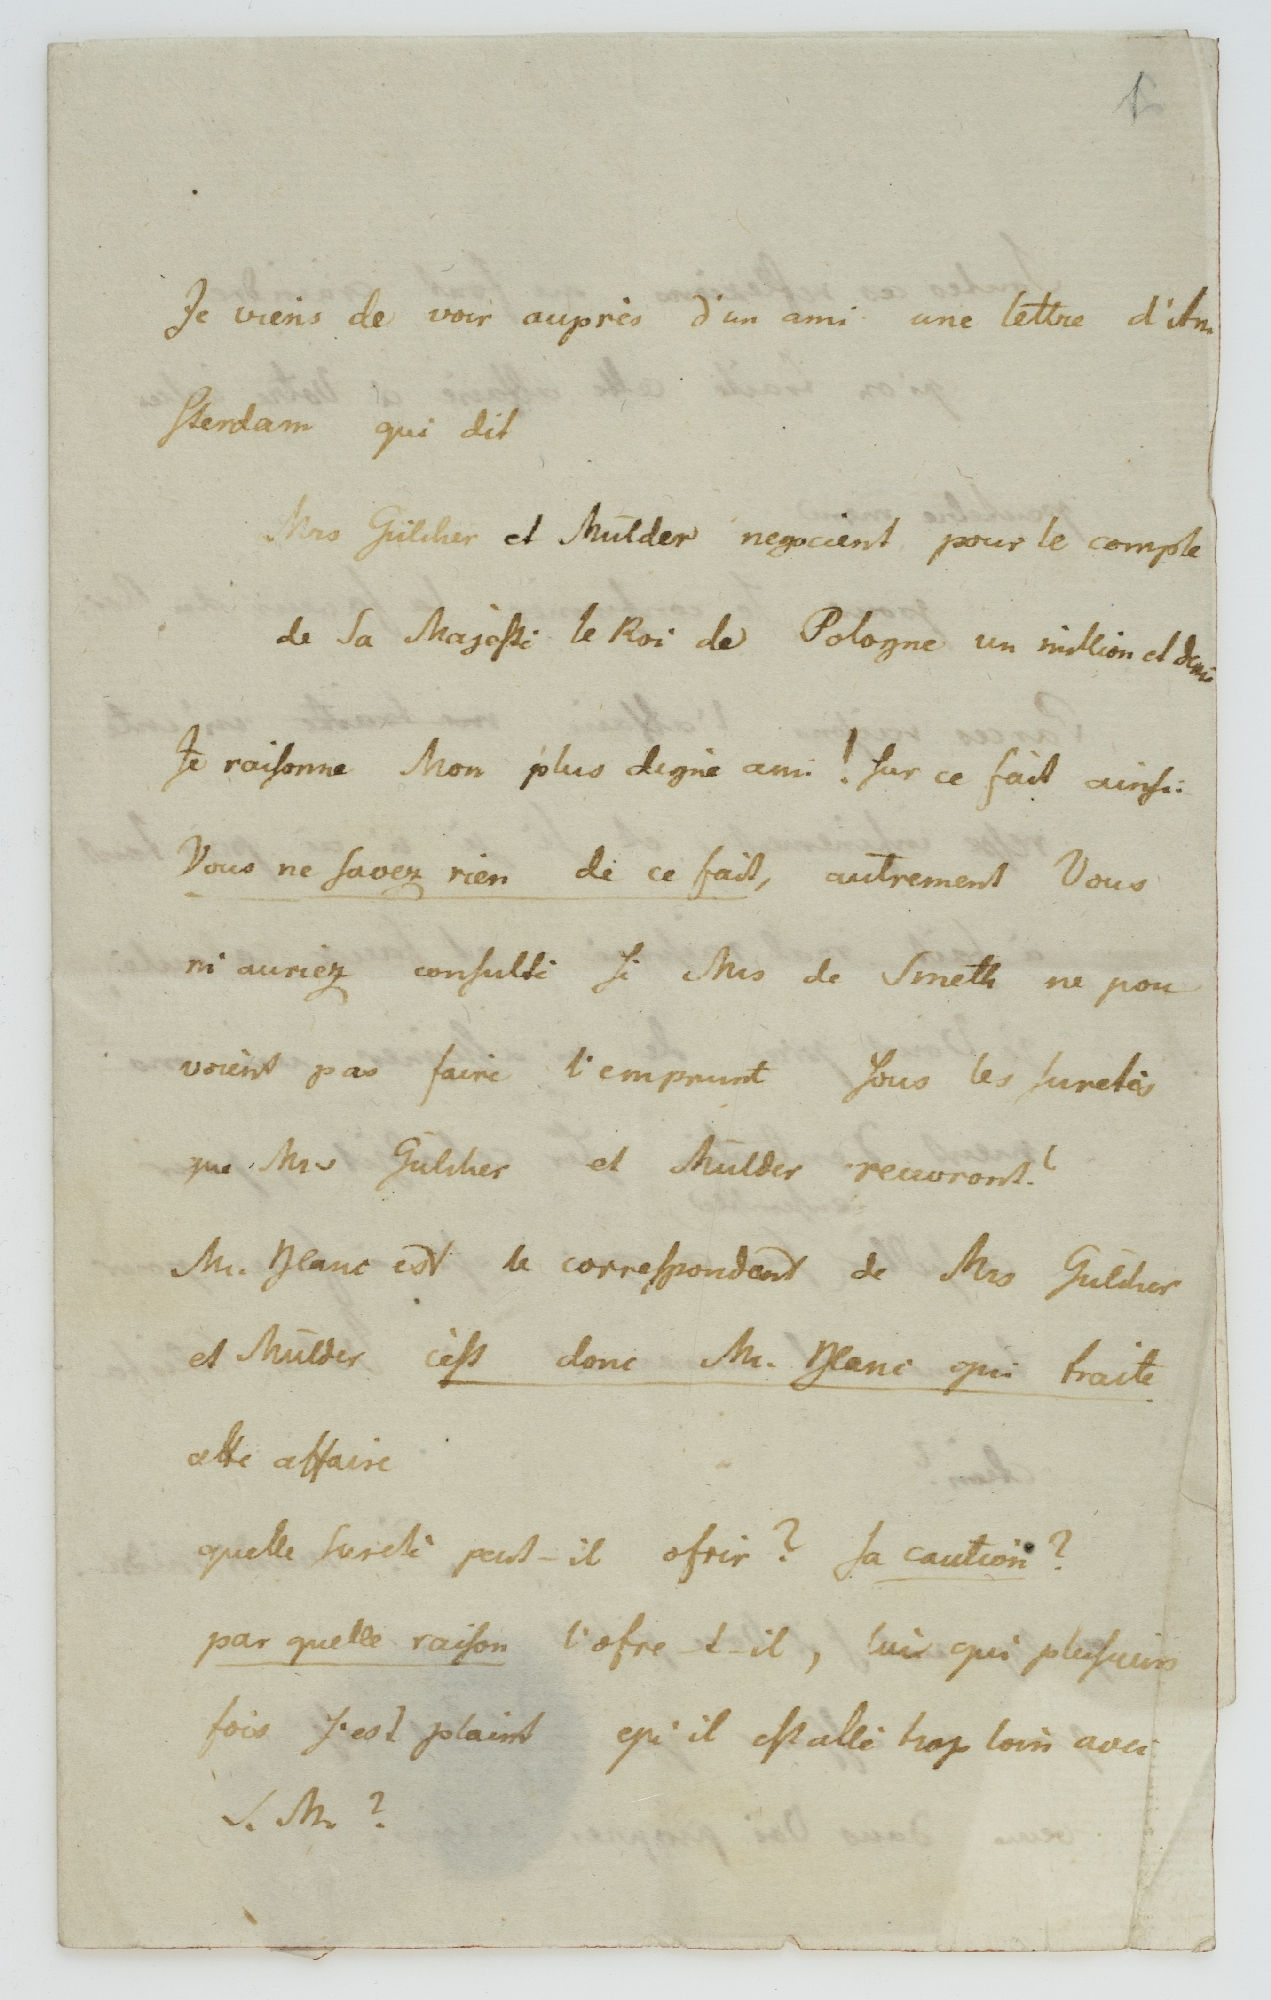 1
Je viens de voir auprès d'un ami une lettre d'Am
sterdam qui dit
Mrs Gülcher et Mülder negocient pour le compte
de Sa Majesté le Roi de Pologne un million et demi
Je raisonne Mon plus digne ami! sur ce fait ainsi:
Vous ne savez rien de ce fait, autrement Vous
m'auriez consulté si Mrs de Smeth ne pou
voient pas faire l'emprunt sous les suretés
que Mrs Gülcher et Mülder recevront!
Mr. Blanc est le correspondant de Mrs Gülcher
et Mülder c'est donc Mr. Blanc qui traite
cette affaire
quelle sureté peut-il ofrir? sa caution?
par quelle raison l'ofre-t-il, lui qui plusieurs
fois s'est plaint qu'il est allé trop loin avec
S. M.?